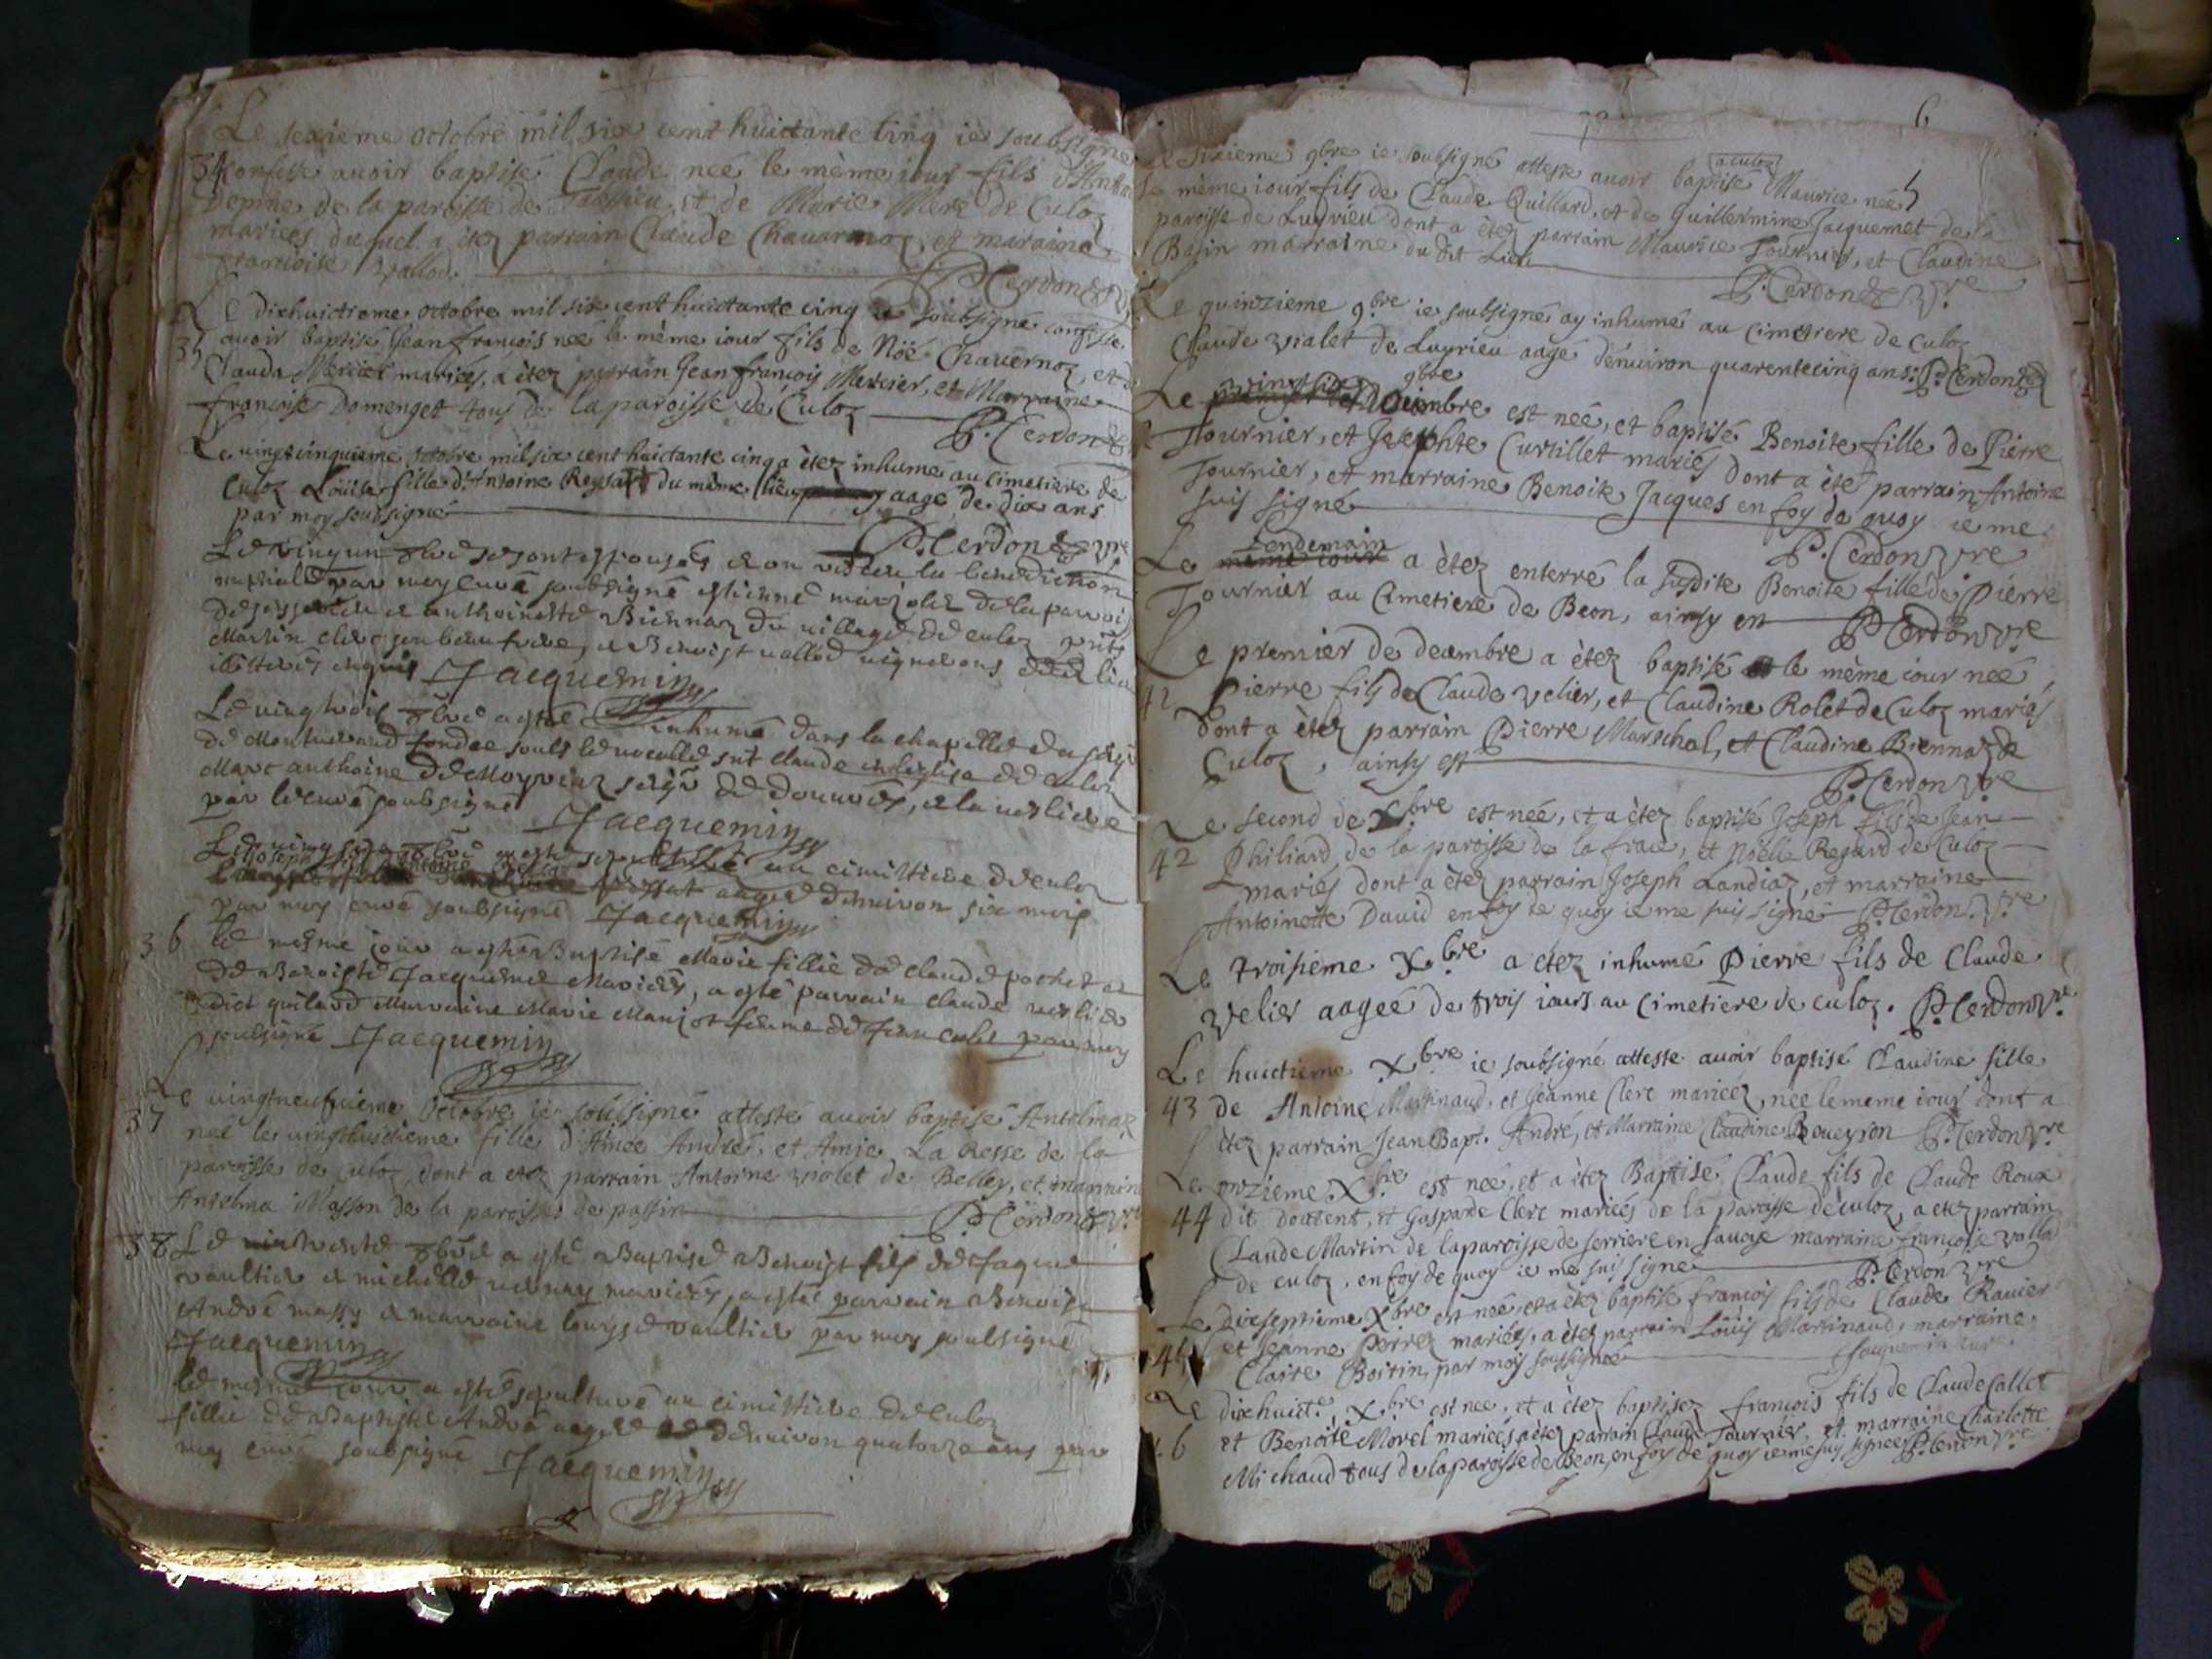 Le sezieme octobre mil six cent huictante cinq ie soubsigné
34 confesse avoir baptisé Claude neé le mème iour fils d'Ant
Depine de la paroisse de et de Marie Mere de Culoz
mariées duquel a etez parrain Claude Chauarnoz, et maraine
francoise Vallod.
P. Cerdon
Le dixhuictieme octobre mil six cent huictante cinq ie soubsigné confesse
35 avoir baptisé Jean francois neé le mème iour fils de Nöé Chauernoz, et d
Clauda Mercier mariés, a ètez parrain Jean francois Mercier, et Marraine
francoise Domenget tous de la paroisse de Culoz
P. Cerdon
Le vingtcinquieme octobre mil six cent huictante cinq a ètez inhume au cimetiere de
Culoz Loüise fille d'Antoine Reysat du mème lieu aage de dix ans
par moy soubsigné
P. Cerdon vre
Le vingun 8bre se sont espousés et on reseu la benediction
nuptialle par moy curé soubsigné estienne de la parroi
de et anthoinette Biennaz du village de culoz pnts
Martin clerc son beau frere, et Benoist vallod vignerons dud lieu
illiterés enquis Jacquemin
Le vingtrois 8bre a esté inhumé dans la chapelle du seigr
de fondee soubs le vocable snt claude esglise de culoz
Marc anthoine de seigr de et la
par le curé soubsigné
Jacquemin
Le vingsix 8bre a esté au cimistiere de culoz
Joseph Antoine
aagé denuiron six mois
par moy curé soubsigné Jacquemin
36 le mesme jour a esté Baptisé Marie fillie de claude pochet et
de Benoiste Jacqueme Mariées, a esté parrain claude
dict Marraine Marie femme de par moy
soubsigné Jacquemin
Le vingtneufuieme Octobre ie soubsigné atteste auoir baptisé Antelmaz
37 neé le vingthuictieme fille d'Amée André, et Amie La Resse de la
paroisse de Culoz, dont a etez parrain Antoine violet de Belley, et marrain
Antelma Masson de la paroisse de passin
P. Cerdon vre
38 Le trente 8bre a esté Baptisé Benoist fils de Jaque
vaultier et michelle mariées, a esté parrain Benoist
André massy et marraine louyse vaultier par moy soubsigné
Jacquemin
le mesme jour a esté sepulturé au cimistiere de Culoz
fillie de Baptiste André aagée de denuiron quatorze ans par
moy curé soubsigné Jacquemin
6
Le sixieme 9bre ie soubsigné atteste auoir baptisé a culoz Maurice neé
le mème iour fils de Claude Quillard, et de Guillermine Jacquemet de la
paroisse de Luyrieu dont a ètez parrain Maurice Tournier, et Claudine
Basin marraine du dit Lieu
P. Cerdon vre
Le quinzieme 9bre ie soubsigné ay inhumé au cimetiere de culoz
Claude violet de Luyrieu aagé d'enuiron quarentecinq ans. P. Cerdon
Le vingtsix 9bre est neé, et baptisé Benoite fille de Pierre
Tournier, et Josephte Curtillet mariés dont a èté parrain Antoine
Tournier, et marraine Benoite Jacques en foy de quoy ie me
suis signé
P. Cerdon vre
Le Lendemain a ètez enterré la susdite Benoite fille de Pierre
Tournier au Cimetiere de Beon, ainsy est P. Cerdon vre
Le premier de decembre a ètez baptisé et le mème iour neé
42 Pierre fils de Claude Velier, et Claudine Rolet de Culoz mariés
dont a ètez parrain Pierre Marschal, et Claudine Biennaz de
Culoz, ainsy est
P. Cerdon vre
Le second de Xbre est neé, et a ètez baptisé Joseph fils de Jean
42 Philiard de la paroisse de la frace, et Noelle Regard de Culoz
mariés dont a ètez parrain Joseph Landiaz, et marraine
Antoinette David en foy de quoy ie me suis signé P. Cerdon. vre
Le troisieme Xbre a etez inhumé Pierre fils de Claude
Velier aagée de trois iours au Cimetiere de culoz. P. Cerdon vre
Le huictieme Xbre ie soubsigné atteste auoir baptisé Claudine fille
43 de Antoine Martinaud, et Jeanne Clerc marieéz, neé le meme iour dont a
ètez parrain Jean Bapt. André, et Marraine Claudine Boueyron P. Cerdon vre
Le onzieme Xbre est neé, et a ètez Baptisé Claude fils de Claude Roux
44 dit doutent, et Gasparde Clerc marieés de la paroisse de culoz, a etez parrain
Claude Martin de la paroisse de serriere en sauoye marraine francoise vallod
de culoz, en foy de quoy ie me suis signé P. Cerdon vre
Le dixseptieme Xbre est neé, et a ètez baptisé francois fils de Claude Rauier
45 et Jeanne Perret mariées, a ètez parrain Loüis Martinaud, marraine
Claire Boitin, par moy soussigneé Jacquemin
Le dixhuicte Xbre est neé, et a ètez baptisez francois fils de Claude Callet
46 et Benoite Morel marieés a ètez parrain Claude Tournier, et marraine Charlotte
Michaud tous de la paroisse de Beon, en foy de quoy ie me suis signeé P. Cerdon vre